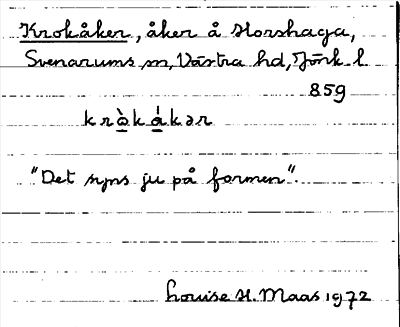 Krokåker, åker å Horshaga,
Svenarums sn, Västra hd, Jönk l
859
kràkákər
"Det syns ju på formen".
Louise H. Maas 1972